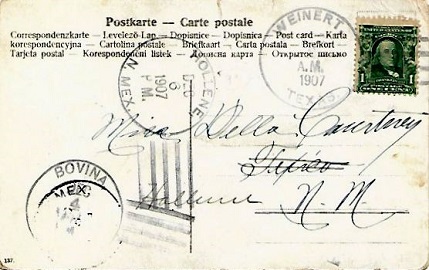 Postkarte — Carte postale
Correspondenzkarte — Levelező Lap — Dopisnice — Dopisnica — Post card — Karta
korespondencyjna — Cartolina postale — Briefkaart — Carta postala — Brefkort —
Tarjeta postal — Korespondenční lístek — Дописна карта — Открытое письмо
WEINERT
A.M.
1907
TEXAS
1 1
HOLLENE
DEC
6
1907
P M.
N. MEX.
Miss Della Courtney
Texico
Hollene N. M.
BOVINA
137.